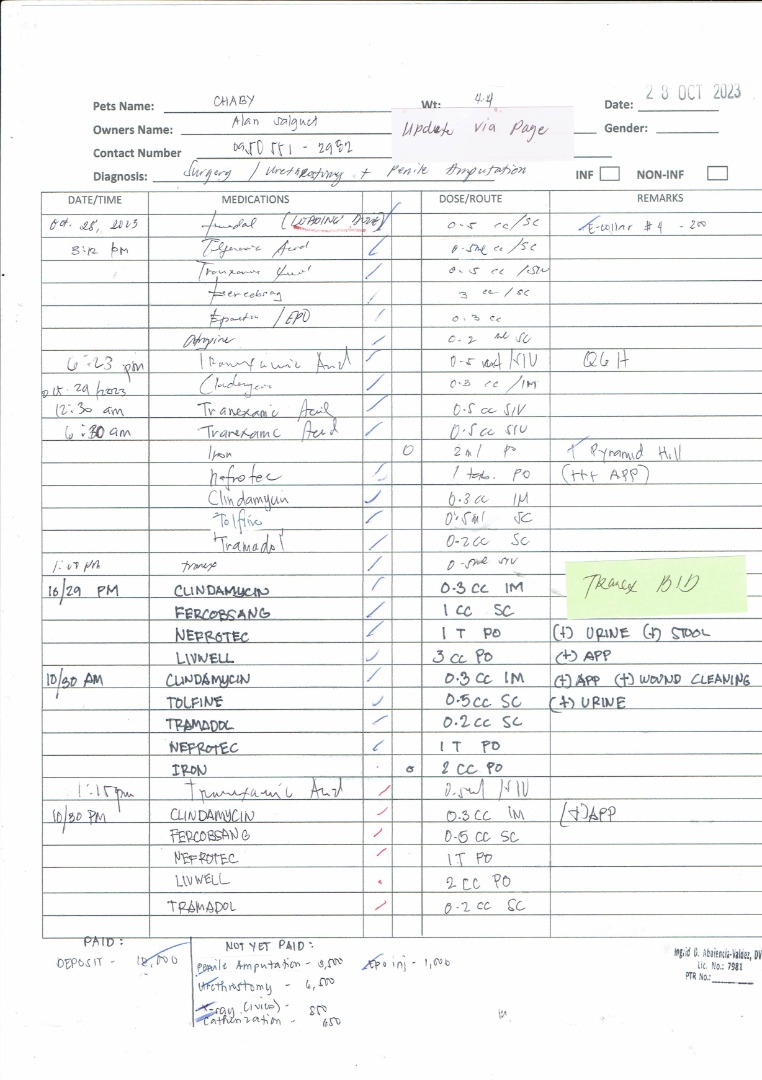 28 OCT 2023
Pets Name: CHABY Wt: 4.4 Date:
Owners Name: Alan Update via Page Gender:
Contact Number
Diagnosis: Surgery / Urethrostomy + Penile Amputation INF NON-INF
DATE/TIME MEDICATIONS DOSE/ROUTE REMARKS
Oct. 28, 2023 (LOADING DOSE) 0.5 cc/SC E-collar #4 - 200
3:12 pm Acid 0.5 cc/SC
0.5 cc
3 cc/SC
/EPO 0.3 cc
Atropine 0.2 SC
6:23 pm Tranexamic Acid 0.5 /SIV Q6H
29/2023 0.3 cc/IM
12:30 am Tranexamic Acid 0.5 cc SIV
6:30 am Tranexamic Acid 0.5 cc SIV
Iron O 2ml PO Pyramid Hill
Nefrotec 1 tab. PO (+++ APP)
Clindamycin 0.3cc IM
Tolfine 0.5ml SC
Tramadol 0.2cc SC
tranex SIV
Tranex BID
10/29 PM CLINDAMYCIN 0.3 CC IM
FERCOBSANG 1 CC SC
NEFROTEC 1 T PO (+) URINE (+) STOOL
LIVWELL 3 CC PO (+) APP
10/30 AM CLINDAMYCIN 0.3 CC IM (+) APP (+) WOUND CLEANING
TOLFINE 0.5CC SC (+) URINE
TRAMADOL 0.2CC SC
NEFROTEC 1 T PO
IRON O 2 CC PO
1:15 pm Tranexamic Acid 0.5ml /SIV
10/30 PM CLINDAMYCIN 0.3CC IM (+) APP
FERCOBSANG 0.5 CC SC
NEFROTEC 1T PO
LIVWELL 2 CC PO
TRAMADOL 0.2 CC SC
PAID:
DEPOSIT -
NOT YET PAID:
Penile Amputation - Epo inj - 1,000
Urethrostomy - 6,500
X-ray (ivico) - 850
Catherization - 650
Lic. No.: 7981
PTR No.: